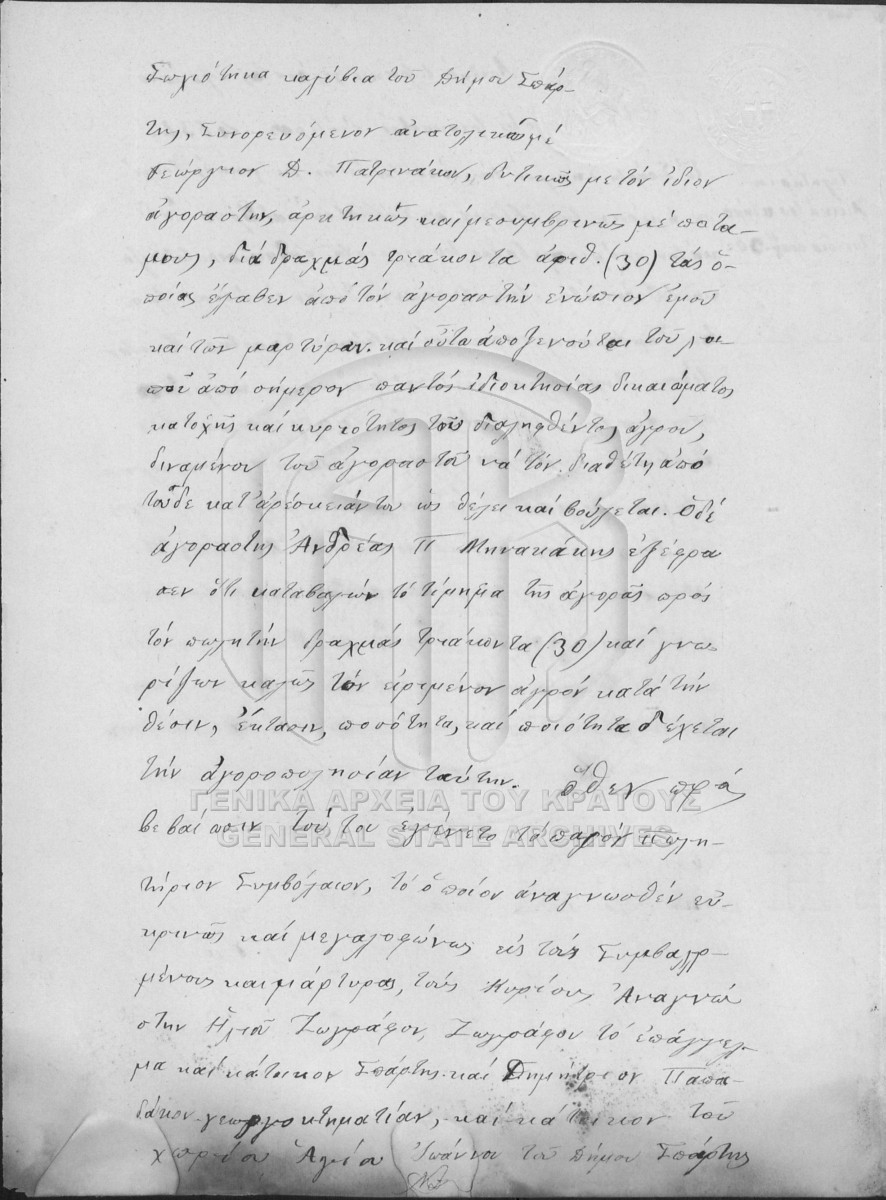 Σωχιότηκα καλύβια τοῦ Δήμου Σπάρ-
της, Συνορευόμενον ἀνατολικῶς μέ
Γεώργιον Δ. Πατρινάκον, δυτικῶς με τόν ἴδιον
ἀγοραστην, ἀρκτηκῶς και μεσυμβρινῶς μέ ποτα-
μους, διά δραχμάς τριάκοντα ἀριθ. (30) τάς ὁ-
ποίας ἔλαβεν ἀπό τόν ἀγοραστήν ἐνώπιον ἐμοῦ
καί τῶν μαρτύρων. και οὕτω ἀποξενοῦται τοῦ λοι-
ποῦ ἀπό σήμερον παντός ἰδιοκτησίας δικαιώματος
κατοχῆς καί κυριότητος τοῦ διαληφθέντος ἀγροῦ,
δυναμένου τοῦ ἀγοραστοῦ νά τόν διαθέτη ἀπό
τοῦδε κατ' ἀρέσκειάν του ὡς θέλει καί βούλεται. Ὁ δέ
ἀγοραστης Ἀνδρέας Π Μηνακάκης ἐξέφρα
σεν ὅτι καταβαλών τό τίμημα τῆς ἀγορᾶς πρός
τόν πωλητήν δραχμάς τριάκοντα (30) καί γνω
ρίζων καλῶς τόν εἰρημένον ἀγρόν κατά τήν
θέσιν, ἔκτασιν, ποσότητα, καί ποιότητα δέχεται
τήν ἀγοροπωλησίαν ταύτην. ὅθεν πρός
βεβαίωσιν τούτου ἐγένετο τό παρόν πωλη-
τήριον Συμβόλαιον, τό ὁποῖον ἀναγνωσθέν εὐ-
κρινῶς καί μεγαλοφώνως εἰς τούς Συμβαλλο-
μένους και μάρτυρας, τούς Κυρίους Ἀναγνώ
στην Ἠλιοῦ Ζωγράφον, Ζωγράφον τό ἐπάγγελ-
μα καί κάτοικον Σπάρτης καί Δημήτριον Παπα-
δάκον γεωργοκτηματίαν, καί κάτοικον τοῦ
χωρίου Ἁγίου Ἰωάννου τοῦ Δήμου Σπάρτης
ΓΕΝΙΚΑ ΑΡΧΕΙΑ ΤΟΥ ΚΡΑΤΟΥΣ
GENERAL STATE ARCHIVES